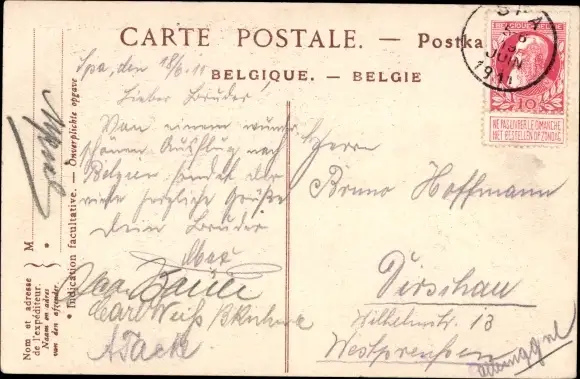 CARTE POSTALE. — Postka
BELGIQUE. — BELGIE
SPA
JUIN
1911
BELGIQUE
10
NE PAS LIVRER LE DIMANCHE
NIET BESTELLEN OP ZONDAG
Spa, den 18/6.11
Lieber Bruder
Von einem wunder-
schönen Ausflug nach
Belgien sendet dir
viele herzliche Grüße
dein Bruder
Max
Carl Weiß
A Tack
Herrn
Bruno Hoffmann
Dirschau
Wilhelmstr. 13
Westpreussen
M
Indication facultative. — Onverplichte opgave
Nom et adresse
de l'expéditeur.
Naam en adres
van den afzender